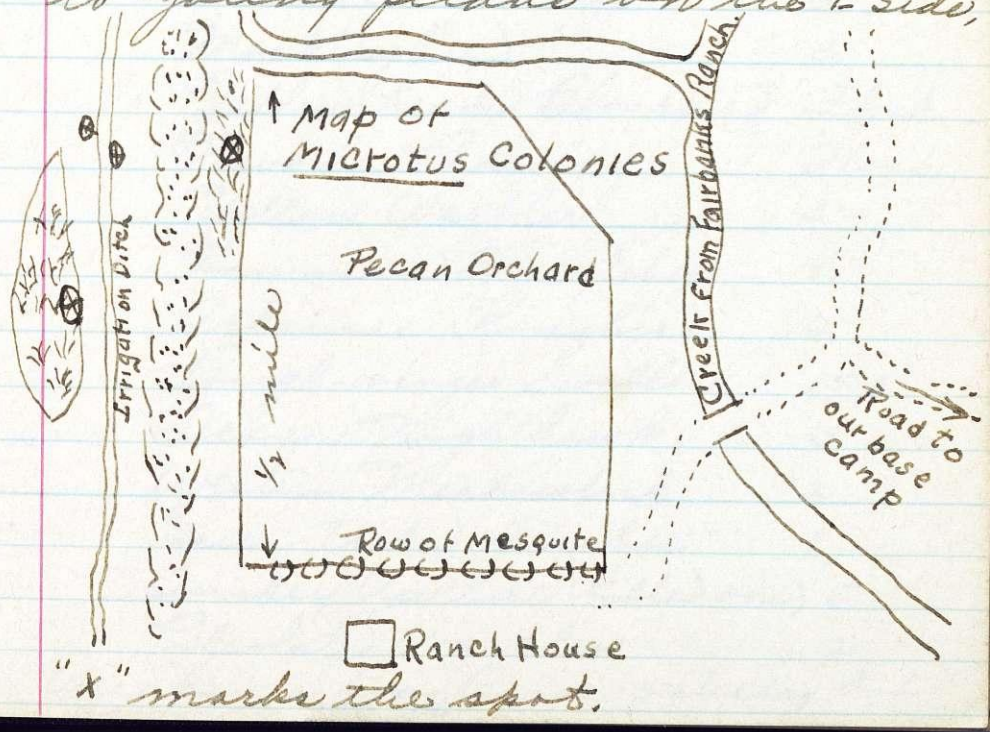 young on the E side,
Map of
Microtus Colonies
Pecan Orchard
1/2 mile
Irrigation Ditch
Creek From Fairbanks Ranch.
Road to
our base
camp
Row of Mesquite
Ranch House
"X" marks the spot.